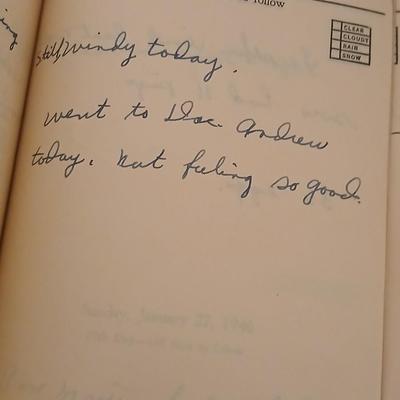 follow
CLEAR
CLOUDY
RAIN
SNOW
still windy today.
went to Doc. Andrew
today. not feeling so good.
Sunday, January 27, 1946